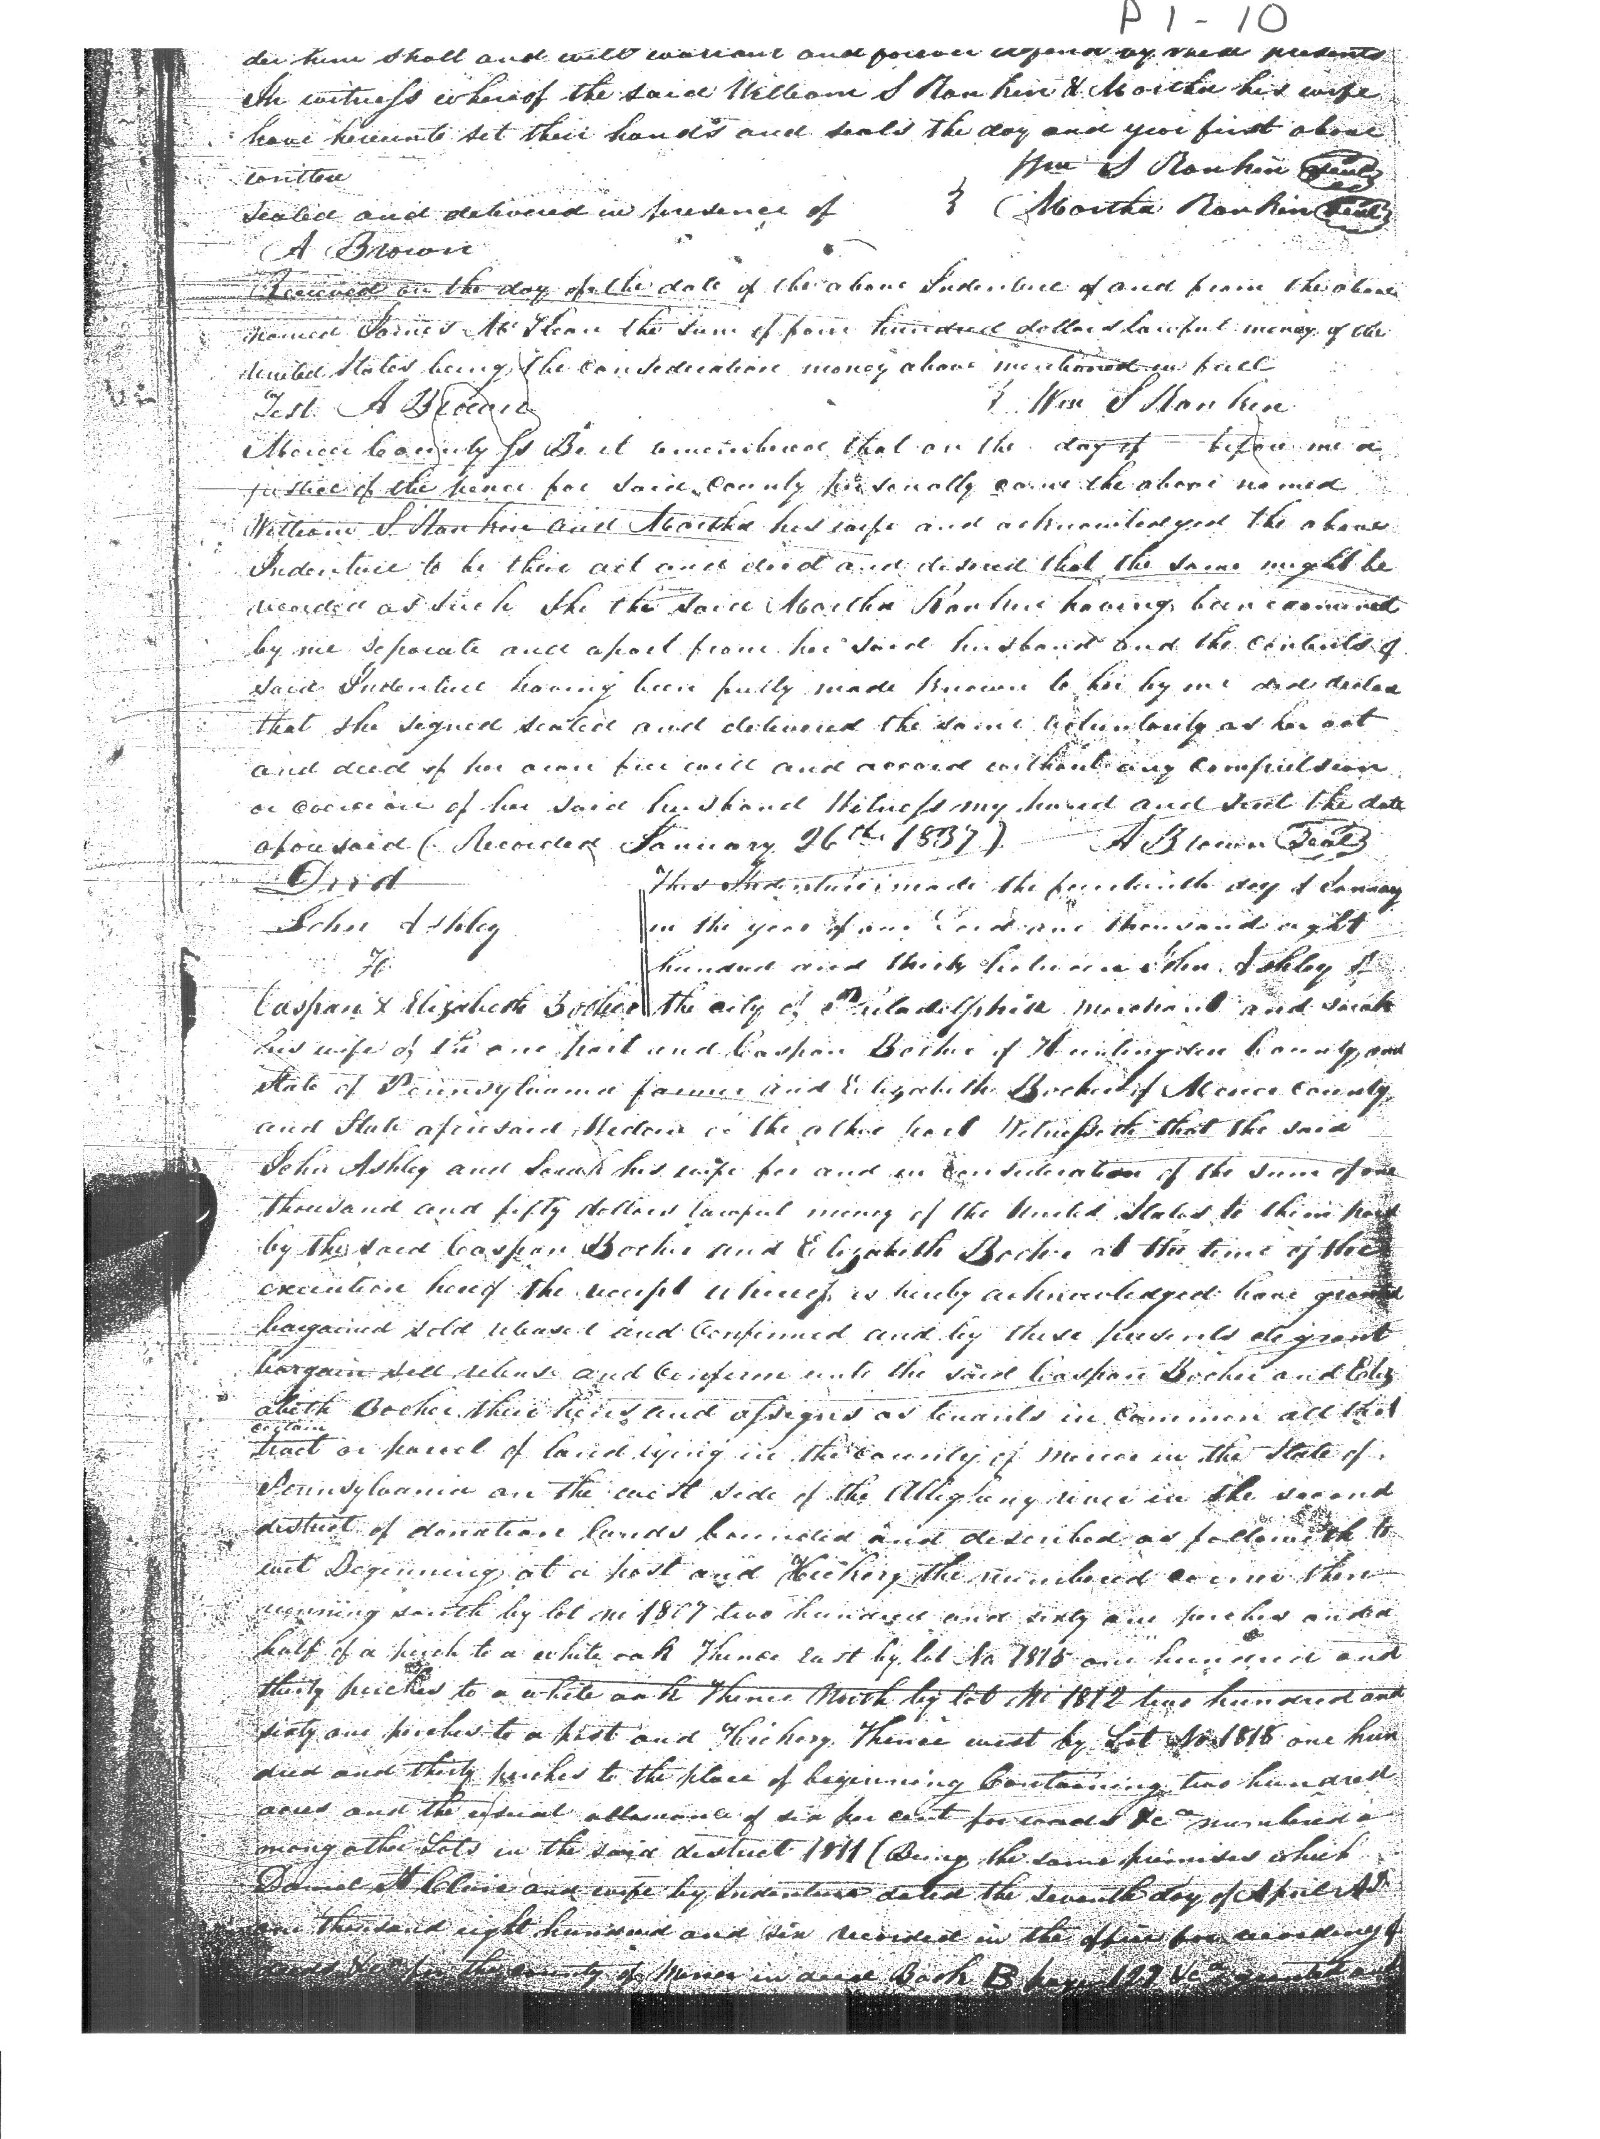 P 1 - 10
der him shall and will warrant and forever defend by these presents
In witness whereof the said William S Rankin & Martha his wife
have hereunto set their hands and seals the day and year first above
written Wm S Rankin Seal
Sealed and delivered in presence of } Martha Rankin Seal
A Brown
Received on the day of the date of the above Indenture of and from the above
named James Mc the sum of four hundred dollars lawful money of the
United States being the consideration money above mentioned in full
Test A Brown } Wm S Rankin
Mercer County Ss Be it remembered that on the day of before me a
justice of the peace for said County personally came the above named
William S Rankin and Martha his wife and acknowledged the above
Indenture to be their act and deed and desired that the same might be
recorded as such She the said Martha Rankin having been examined
by me separate and apart from her said husband and the contents of
said Indenture having been fully made known to her by me did declare
that she signed sealed and delivered the same voluntarily as her act
and deed of her own free will and accord without any compulsion
or coercion of her said husband Witness my hand and seal the date
aforesaid (Recorded January 26th 1837) A Brown Seal
Deed This Indenture made the fourteenth day of January
John Ashley in the year of our Lord one thousand eight
To hundred and thirty between John Ashley of
Caspar & Elizabeth Bocher the city of Philadelphia merchant and Sarah
his wife of the one part and Caspar Bocher of Huntingdon County and
State of Pennsylvania farmer and Elizabeth Bocher of Mercer County
and State aforesaid Widow of the other part Witnesseth that the said
John Ashley and Sarah his wife for and in consideration of the sum of one
thousand and fifty dollars lawful money of the United States to them paid
by the said Caspar Bocher and Elizabeth Bocher at the time of the
execution hereof the receipt whereof is hereby acknowledged have granted
bargained sold released and confirmed and by these presents do grant
bargain sell release and confirm unto the said Caspar Bocher and Eliz
abeth Bocher their heirs and assigns as tenants in common all that
certain
tract or parcel of land lying in the county of Mercer in the State of
Pennsylvania on the west side of the Allegheny river in the second
district of donation lands bounded and described as followeth to
wit Beginning at a post and Hickory the numbered corner then
running south by lot no 1807 two hundred and sixty one perches and a
half of a perch to a white oak Thence East by lot No 1815 one hundred and
thirty perches to a white oak Thence North by lot No 1812 two hundred and
sixty one perches to a post and Hickory Thence west by Lot No 1818 one hun
dred and thirty perches to the place of beginning Containing two hundred
acres and the usual allowance of six per cent for roads &c numbered a
mong other Lots in the said district 1811 (Being the same premises which
Daniel St Clair and wife by Indenture dated the seventh day of April AD
one thousand eight hundred and six recorded in the office for recording of
deeds &c for the county of Mercer in deed Book B page 197 &c